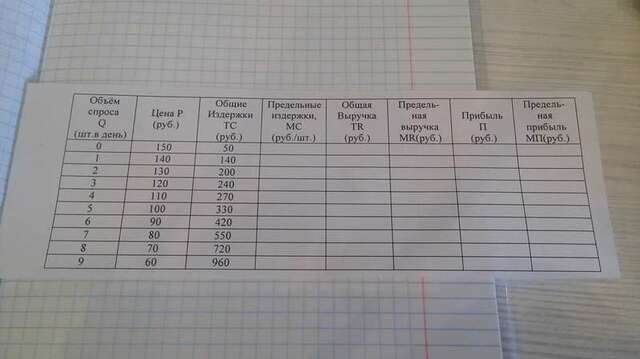 Объём спроса Q (шт.в день) Цена P (руб.) Общие Издержки TC (руб.) Предельные издержки, MC (руб./шт.) Общая Выручка TR (руб.) Предель- ная выручка MR(руб.) Прибыль П (руб.) Предель- ная прибыль МП(руб.)
0 150 50
1 140 140
2 130 200
3 120 240
4 110 270
5 100 330
6 90 420
7 80 550
8 70 720
9 60 960